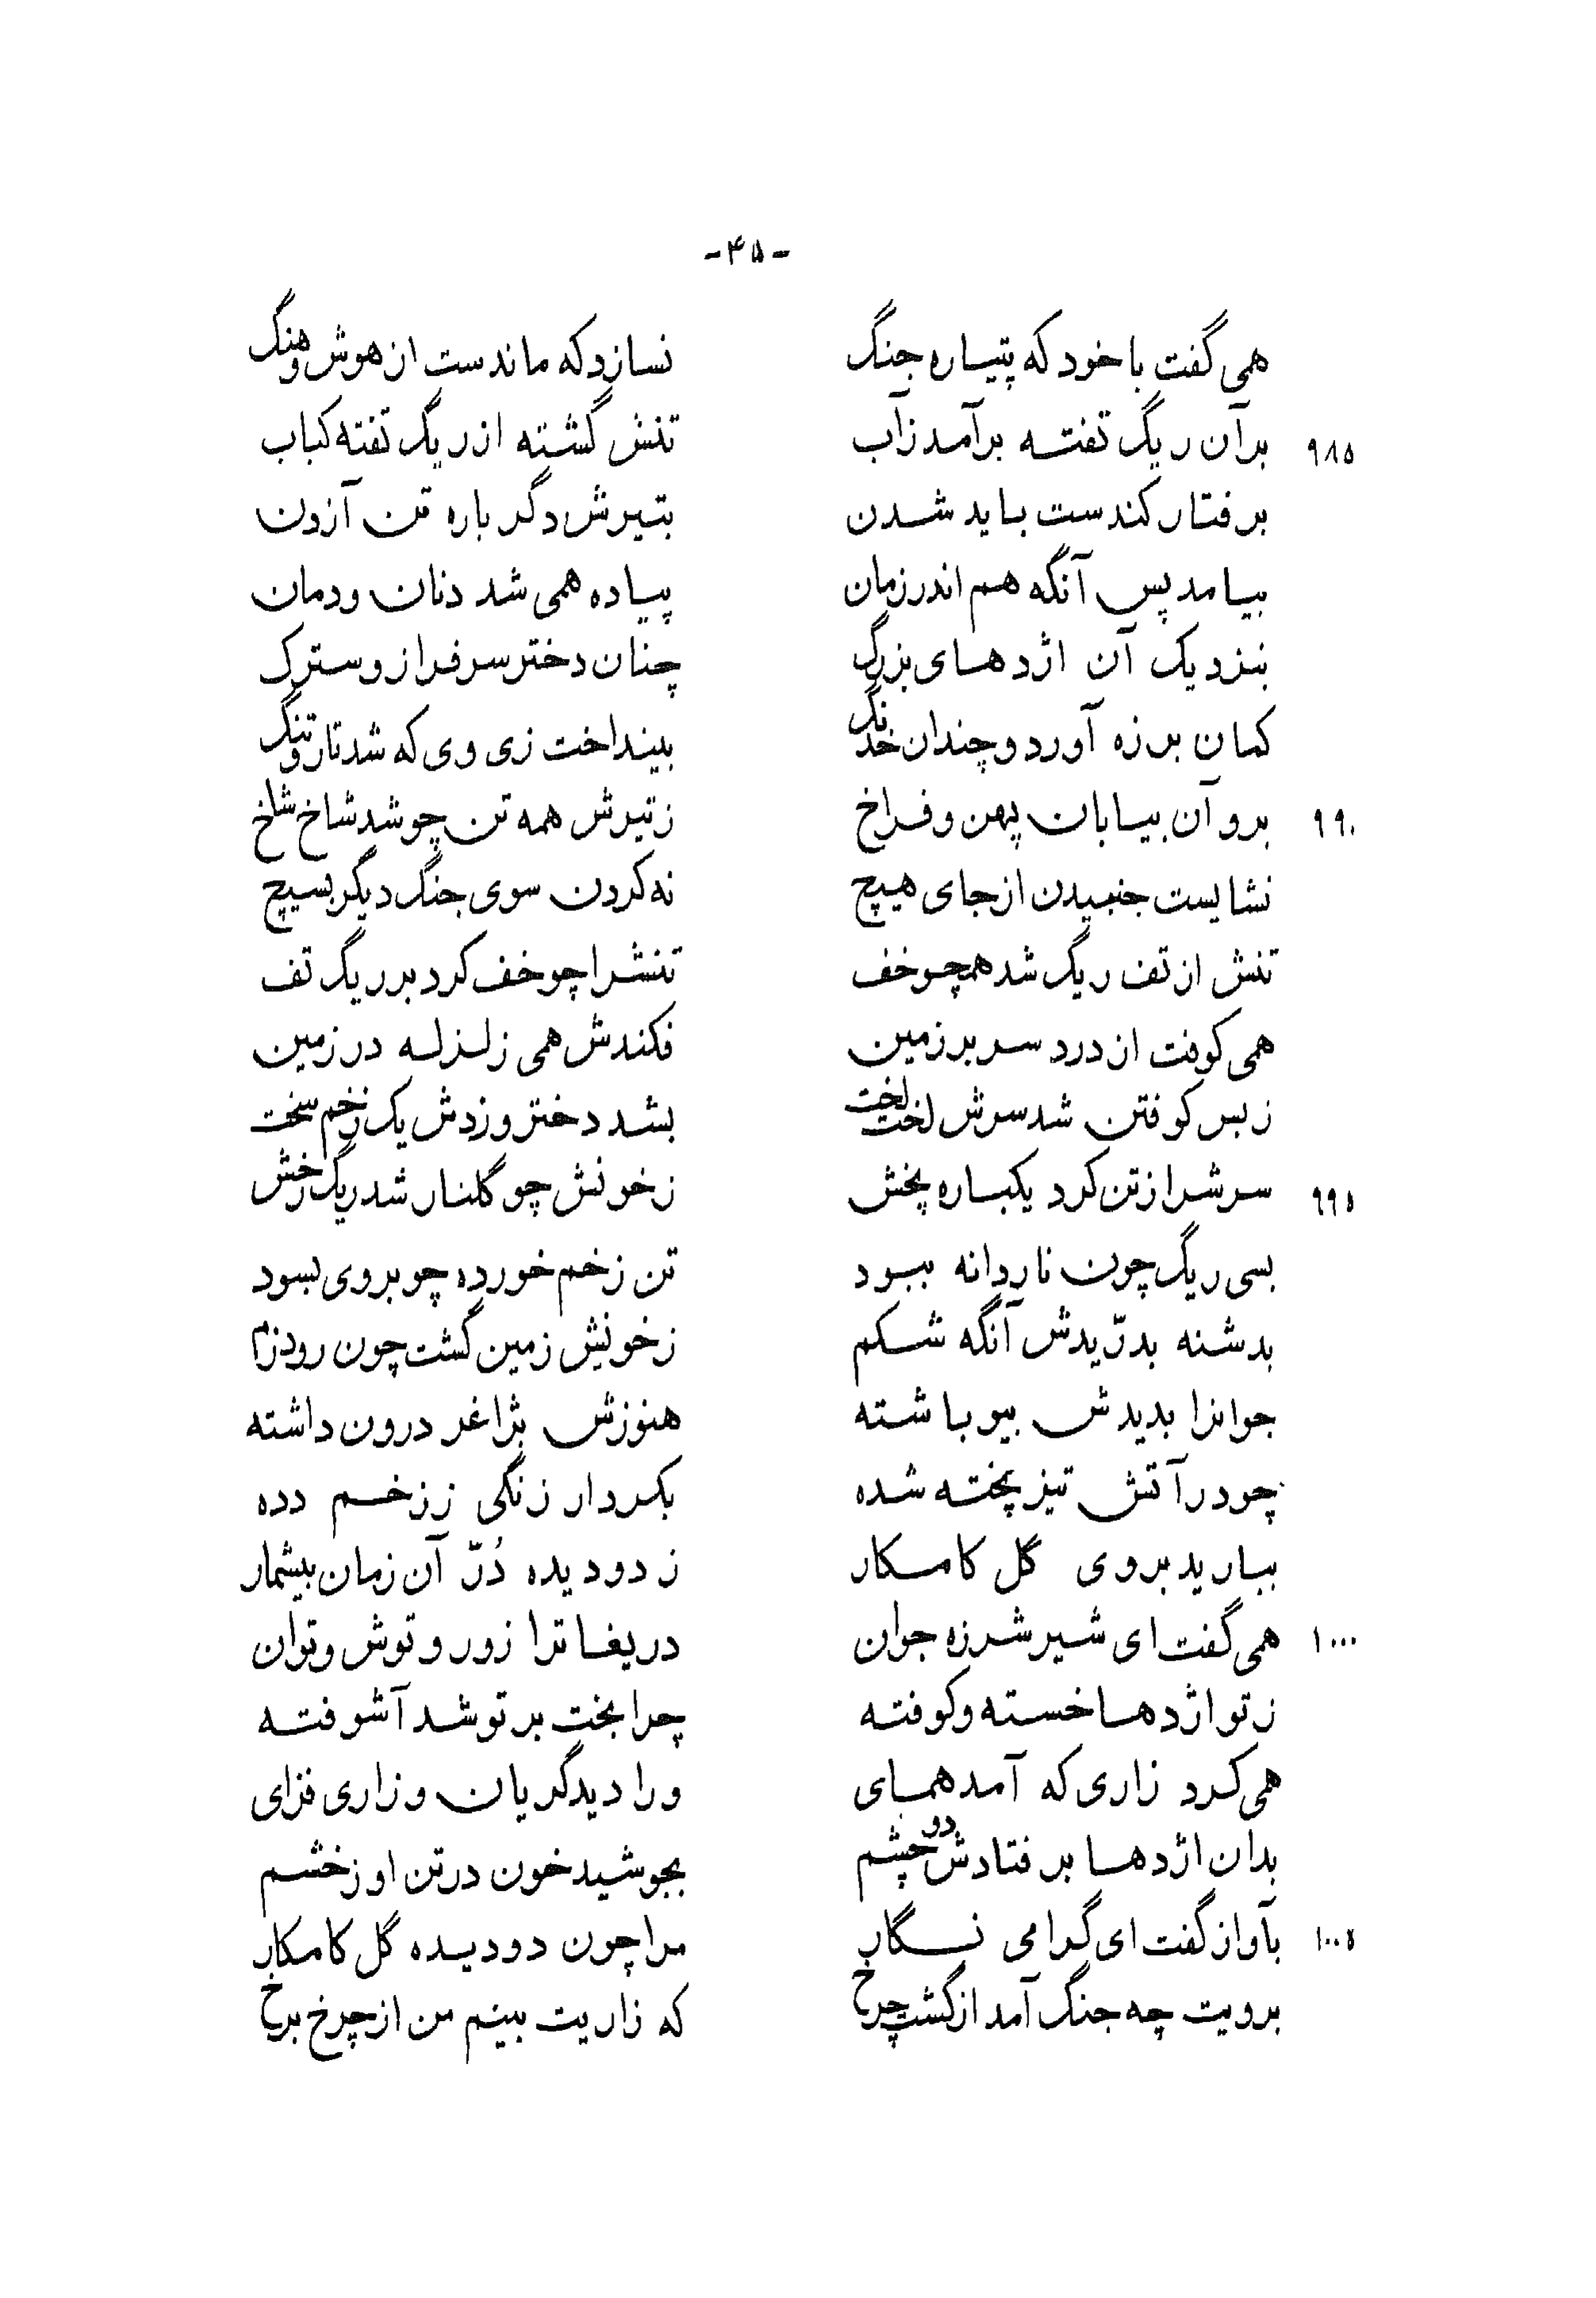 -۴۵-
همی گفت با خود که پتیاره جنگ نسازد که ماندست از هوش و هنگ
۹۸۵ بر آن ریگ تفته برآمد ز آب تنش گشته از ریگ تفته کباب
برفتار کندست باید شدن بتیرش دگر باره تن آزدن
بیامد پس آنگه هم اندر زمان پیاده همی شد دنان و دمان
بنزدیک آن اژدهای بزرگ چنان دختر سرفراز و سترک
کمان بر زه آورد و چندان خدنگ بینداخت زی وی که شد تار و تنگ
۹۹۰ برو آن بیابان پهن و فراخ ز تیرش همه تن چو شد شاخ شاخ
نشایست جنبیدن از جای هیچ نه کردن سوی جنگ دیگر بسیچ
تنش از تف ریگ شد همچو خف تنشرا چو خف کرد بر ریگ تف
همی کوفت از درد سر بر زمین فکندش همی زلزله در زمین
ز بس کوفتن شد سرش لخت لخت بشد دختر و زدش یک زخم سخت
۹۹۵ سرشرا ز تن کرد یکباره پخش ز خونش چو گلنار شد ریگ رخش
بسی ریگ چون ناردانه ببود تن زخم خورده چو بروی بسود
بدشنه بدرّیدش آنگه شکم ز خونش زمین گشت چون رود زم
جوانرا بدیدش بیوباشته هنوزش بژاغر درون داشته
چو در آتش تیز پخته شده بکردار زنگی ز زخم دده
ببارید بروی گل کامکار ز دو دیده دُرّ آن زمان بیشمار
۱۰۰۰ همی گفت ای شیر شرزه جوان دریغا ترا زور و توش و توان
ز تو اژدها خسته و کوفته چرا بخت بر تو شد آشوفته
همی کرد زاری که آمد همای ورا دید گریان و زاری فزای
بدان اژدها بر فتادش دو چشم بجوشید خون در تن او ز خشم
۱۰۰۵ بآواز گفت ای گرامی نگار مرا چون دو دیده گل کامکار
برویت چه جنگ آمد از گشت چرخ که زاریت بینم من از چرخ برخ